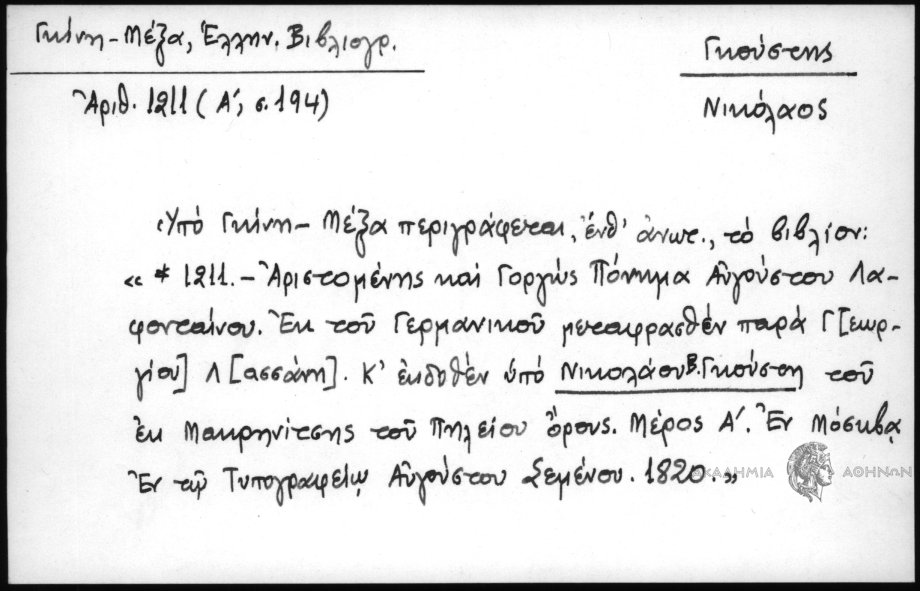 Γκίνη - Μέξα, Ἑλλην. Βιβλιογρ.
Ἀριθ. 1211 (Α΄, σ. 194)
Γκούστης
Νικόλαος
Ὑπό Γκίνη - Μέξα περιγράφεται, ἔνθ' ἀνωτ., τό βιβλίον:
«* 1211. - Ἀριστομένης καί Γοργώς Πόνημα Αὐγούστου Λα-
φονταίνου. Ἐκ τοῦ Γερμανικοῦ μεταφρασθέν παρά Γ[εωρ-
γίου] Λ[ασσάνη]. Κ' ἐκδοθέν ὑπό Νικολάου Β. Γκούστη τοῦ
ἐκ Μακρηνίτσης τοῦ Πηλείου ὄρους. Μέρος Α΄. Ἐν Μόσκβᾳ
Ἐν τῷ Τυπογραφείῳ Αὐγούστου Σεμένου. 1820.»
ΑΚΑΔΗΜΙΑ ΑΘΗΝΩΝ